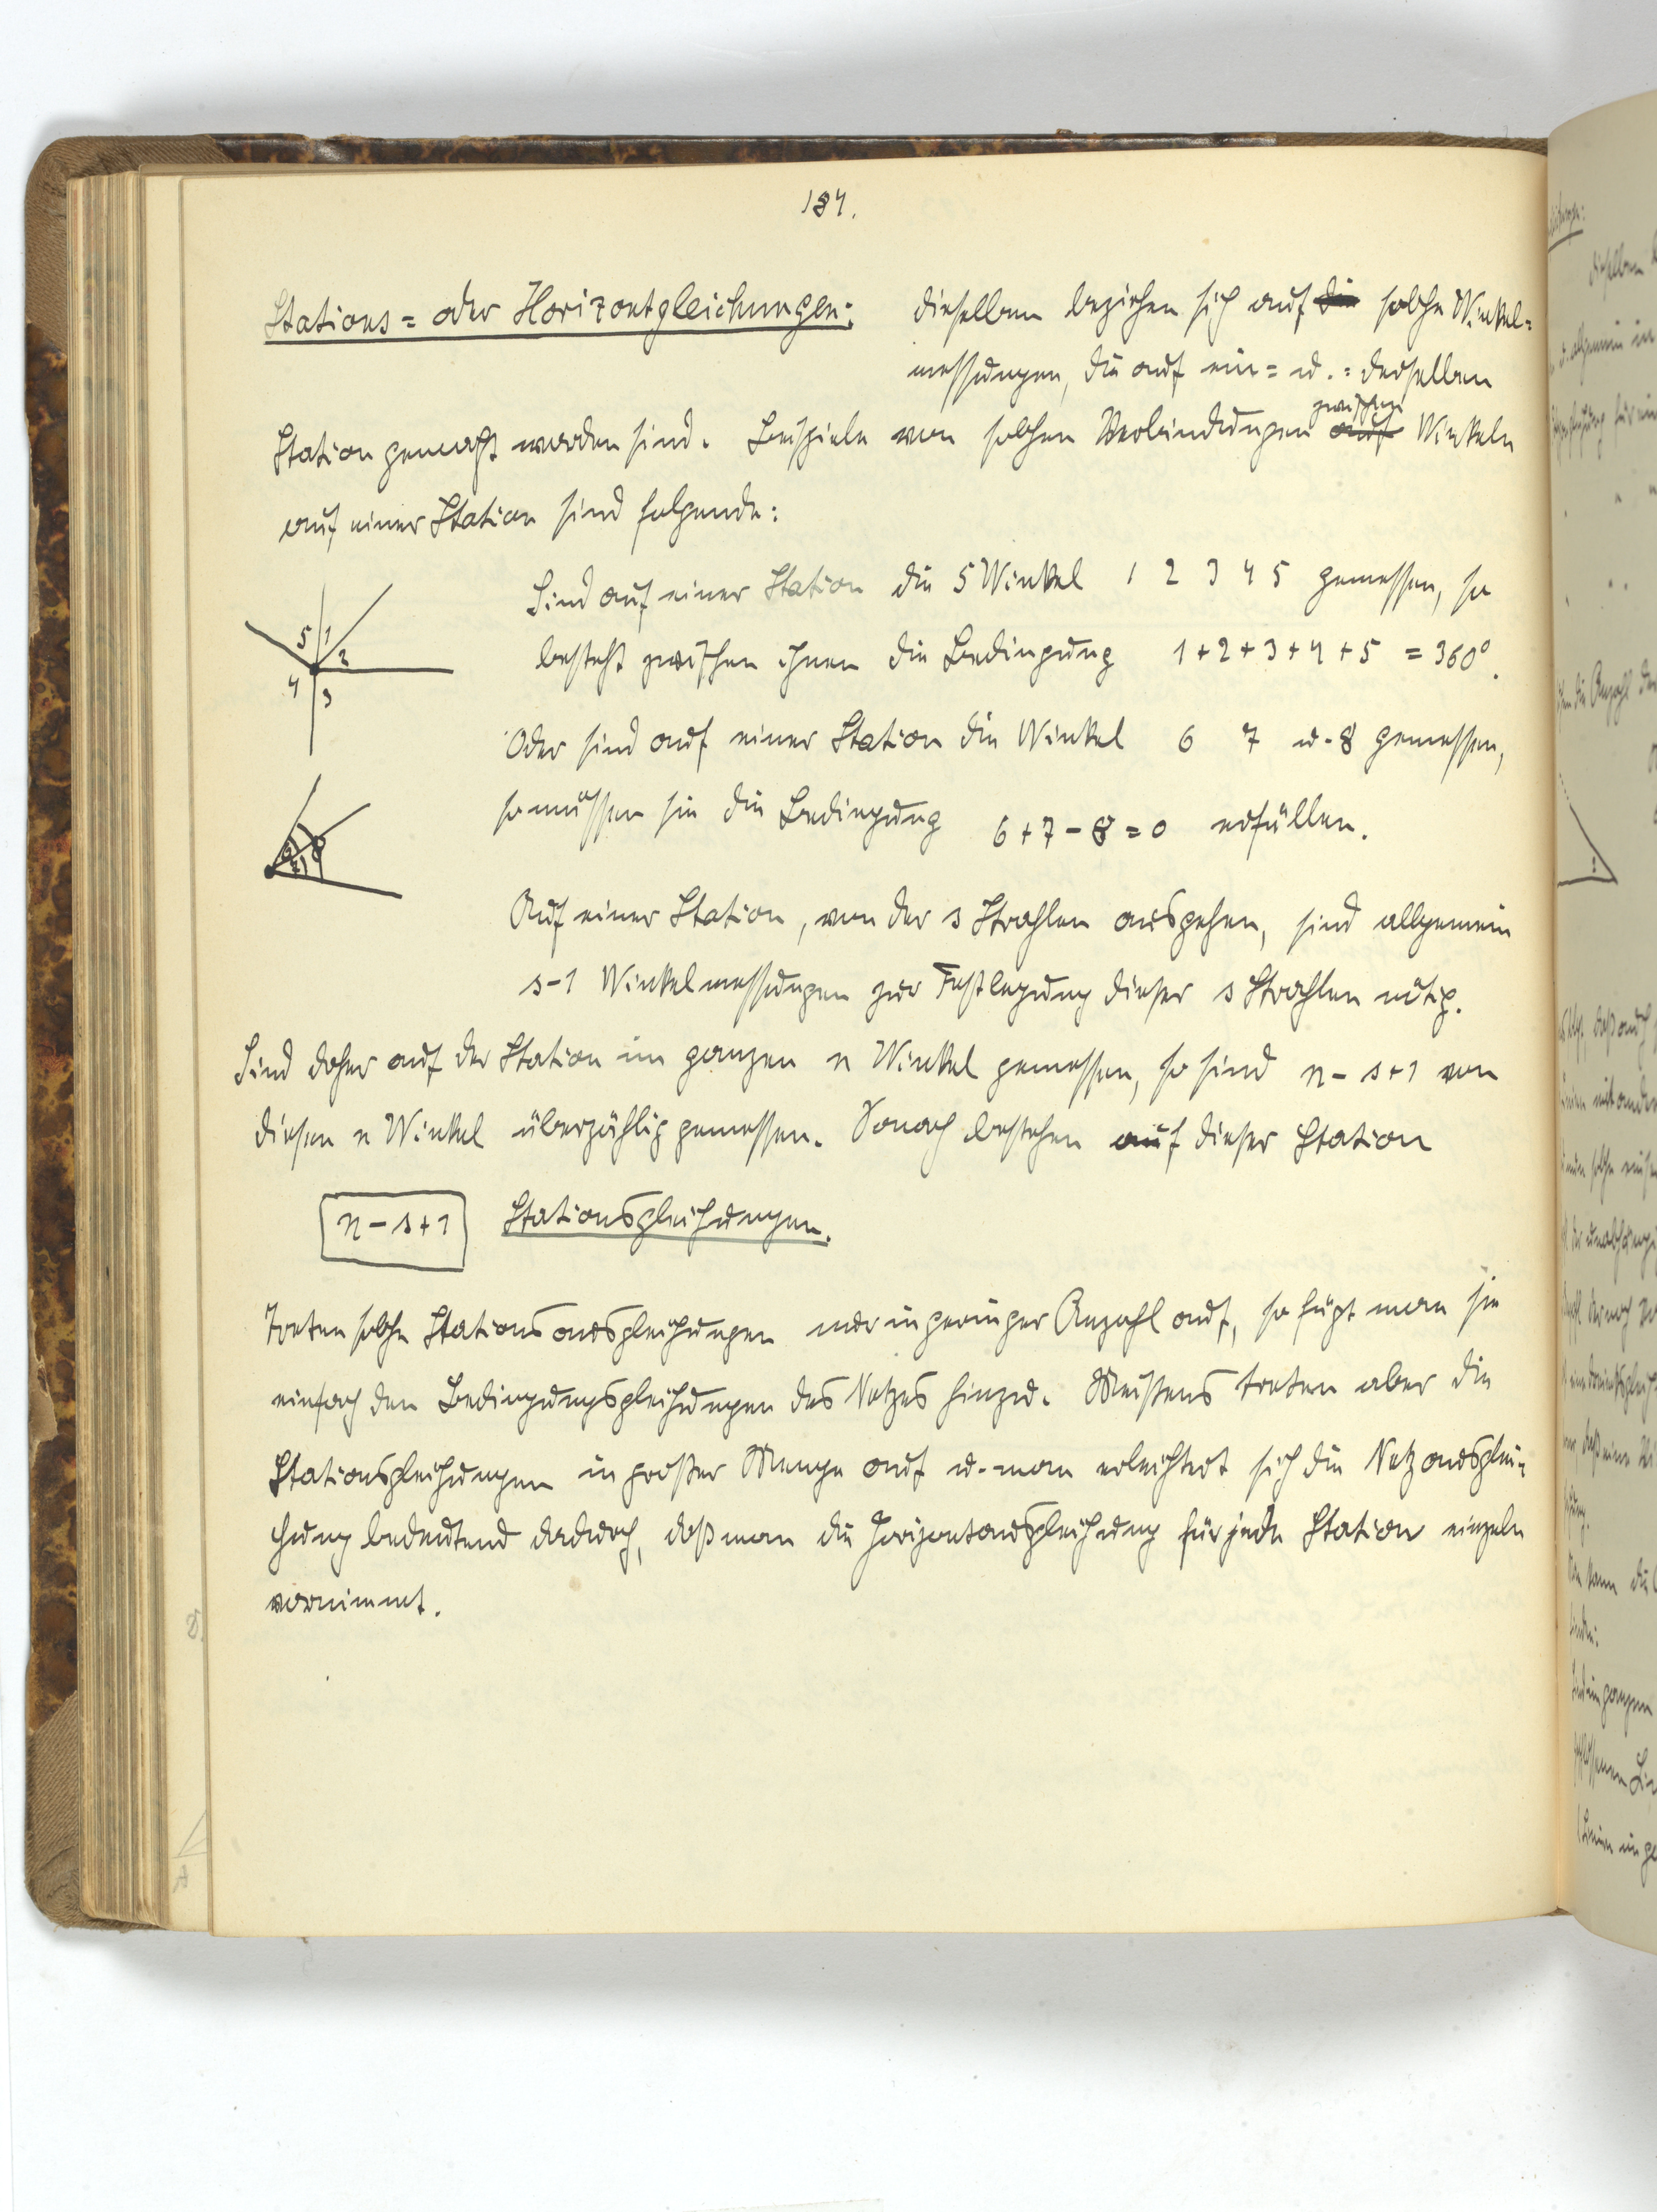 184.
Stations= oder Horizontgleichungen:
dieselben beziehen sich auf die solche Winkel=
messungen, die auf ein= u. =derselben
zwischen
Station gemacht worden sind. Beispiele von solchen Verbindungen auf Winkeln
auf einer Station sind folgende:
Sind auf einer Station die 5 Winkel 1 2 3 4 5 gemessen, so
besteht zwischen ihnen die Bedingung 1+2+3+4+5 = 360°.
5 1 2 4 3
Oder sind auf einer Station die Winkel 6 7 u. 8 gemessen,
so müssen sie die Bedingung 6+7-8=0 erfüllen.
6 7 8
Auf einer Station, von der s Strahlen ausgehen, sind allgemein
s-1 Winkelmessungen zur Festlegung dieser s Strahlen nötig.
Sind daher auf der Station im ganzen n Winkel gemessen, so sind n-s+1 von
diesen n Winkel überzählig gemessen. Sonach bestehen auf dieser Station
n-s+1 Stationsgleichungen.
Treten solche Stationsausgleichungen nur in geringer Anzahl auf, so fügt man sie
einfach den Bedingungsgleichungen des Netzes hinzu. Meistens treten aber die
Stationsgleichungen in großer Menge auf u. man erleichtert sich die Netzausglei=
chung bedeutend dadurch, daß man die Horizontausgleichung für jede Station einzeln
vornimmt.